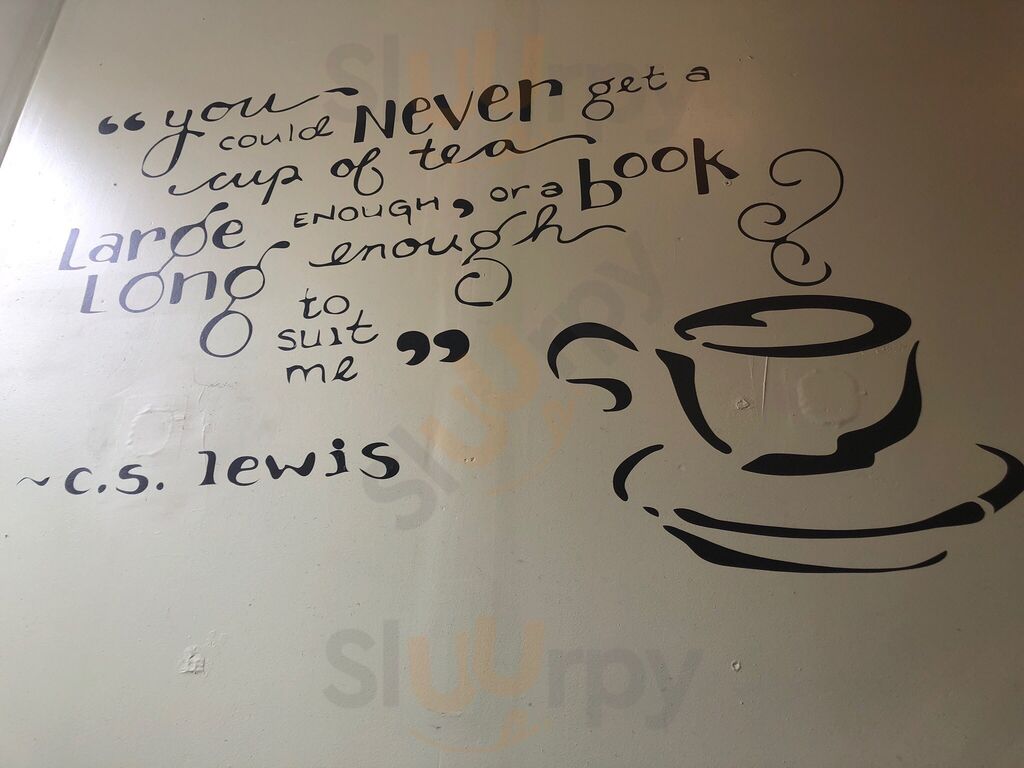 Sluurpy
“you could Never get a
cup of tea
Large ENOUGH, or a book
Long enough
to
suit
me”
~C.S. Lewis
Sluurpy
Sluurpy